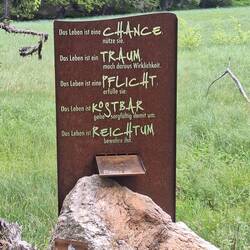 Das Leben ist eine CHANCE,
nütze sie.
Das Leben ist ein TRAUM,
mach daraus Wirklichkeit.
Das Leben ist eine PFLICHT,
erfülle sie.
Das Leben ist KOSTBAR
gehe sorgfältig damit um.
Das Leben ist REICHTUM
bewahre ihn.